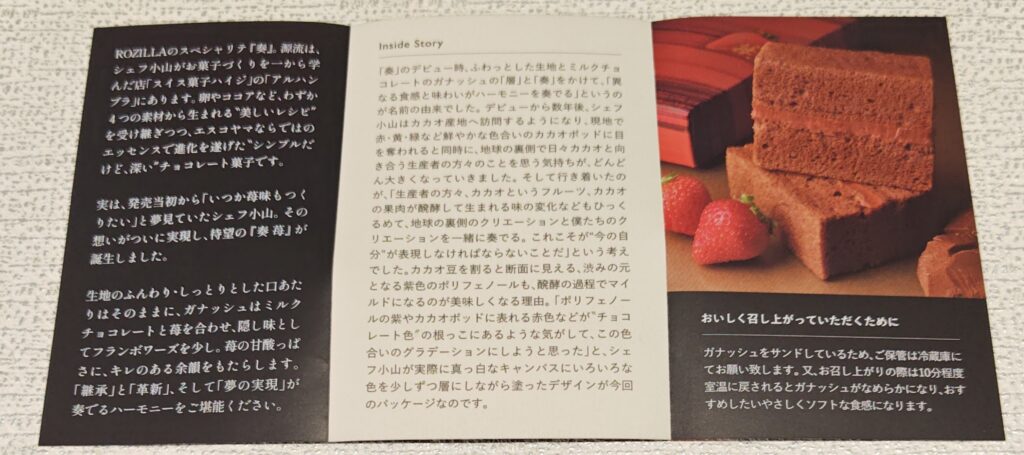 ROZILLAのスペシャリテ『奏』。源流は、
シェフ小山がお菓子づくりを一から学
んだ店「スイス菓子ハイジ」の「アルハン
ブラ」にあります。卵やココアなど、わずか
4つの素材から生まれる“美しいレシピ”
を受け継ぎつつ、エスコヤマならではの
エッセンスで進化を遂げた“シンプルだ
けど、深い”チョコレート菓子です。
実は、発売当初から「いつか苺味もつく
りたい」と夢見ていたシェフ小山。その
想いがついに実現し、待望の『奏 苺』が
誕生しました。
生地のふんわり・しっとりとした口あた
りはそのままに、ガナッシュはミルク
チョコレートと苺を合わせ、隠し味とし
てフランボワーズを少し。苺の甘酸っぱ
さに、キレのある余韻をもたらします。
「継承」と「革新」、そして「夢の実現」が
奏でるハーモニーをご堪能ください。
Inside Story
「奏」のデビュー時、ふわっとした生地とミルクチョ
コレートのガナッシュの「層」と「奏」をかけて、「異
なる食感と味わいがハーモニーを奏でる」というの
が名前の由来でした。デビューから数年後、シェフ
小山はカカオ産地へ訪問するようになり、現地で
赤・黄・緑など鮮やかな色合いのカカオポッドに目
を奪われると同時に、地球の裏側で日々カカオと向
き合う生産者の方々のことを思う気持ちが、どんど
ん大きくなっていきました。そして行き着いたの
が、「生産者の方々、カカオというフルーツ、カカオ
の果肉が醗酵して生まれる味の変化などもひっく
るめて、地球の裏側のクリエーションと僕たちのク
リエーションを一緒に奏でる。これこそが“今の自
分”が表現しなければならないことだ」という考え
でした。カカオ豆を割ると断面に見える、渋みの元
となる紫色のポリフェノールも、醗酵の過程でマイ
ルドになるのが美味しくなる理由。「ポリフェノー
ルの紫やカカオポッドに表れる赤色などが“チョコ
レート色”の根っこにあるような気がして、この色
合いのグラデーションにしようと思った」と、シェ
フ小山が実際に真っ白なキャンバスにいろいろな
色を少しずつ層にしながら塗ったデザインが今回
のパッケージなのです。
おいしく召し上がっていただくために
ガナッシュをサンドしているため、ご保管は冷蔵庫に
てお願い致します。又、お召し上がりの際は10分程度
室温に戻されるとガナッシュがなめらかになり、おす
すめしたいやさしくソフトな食感になります。